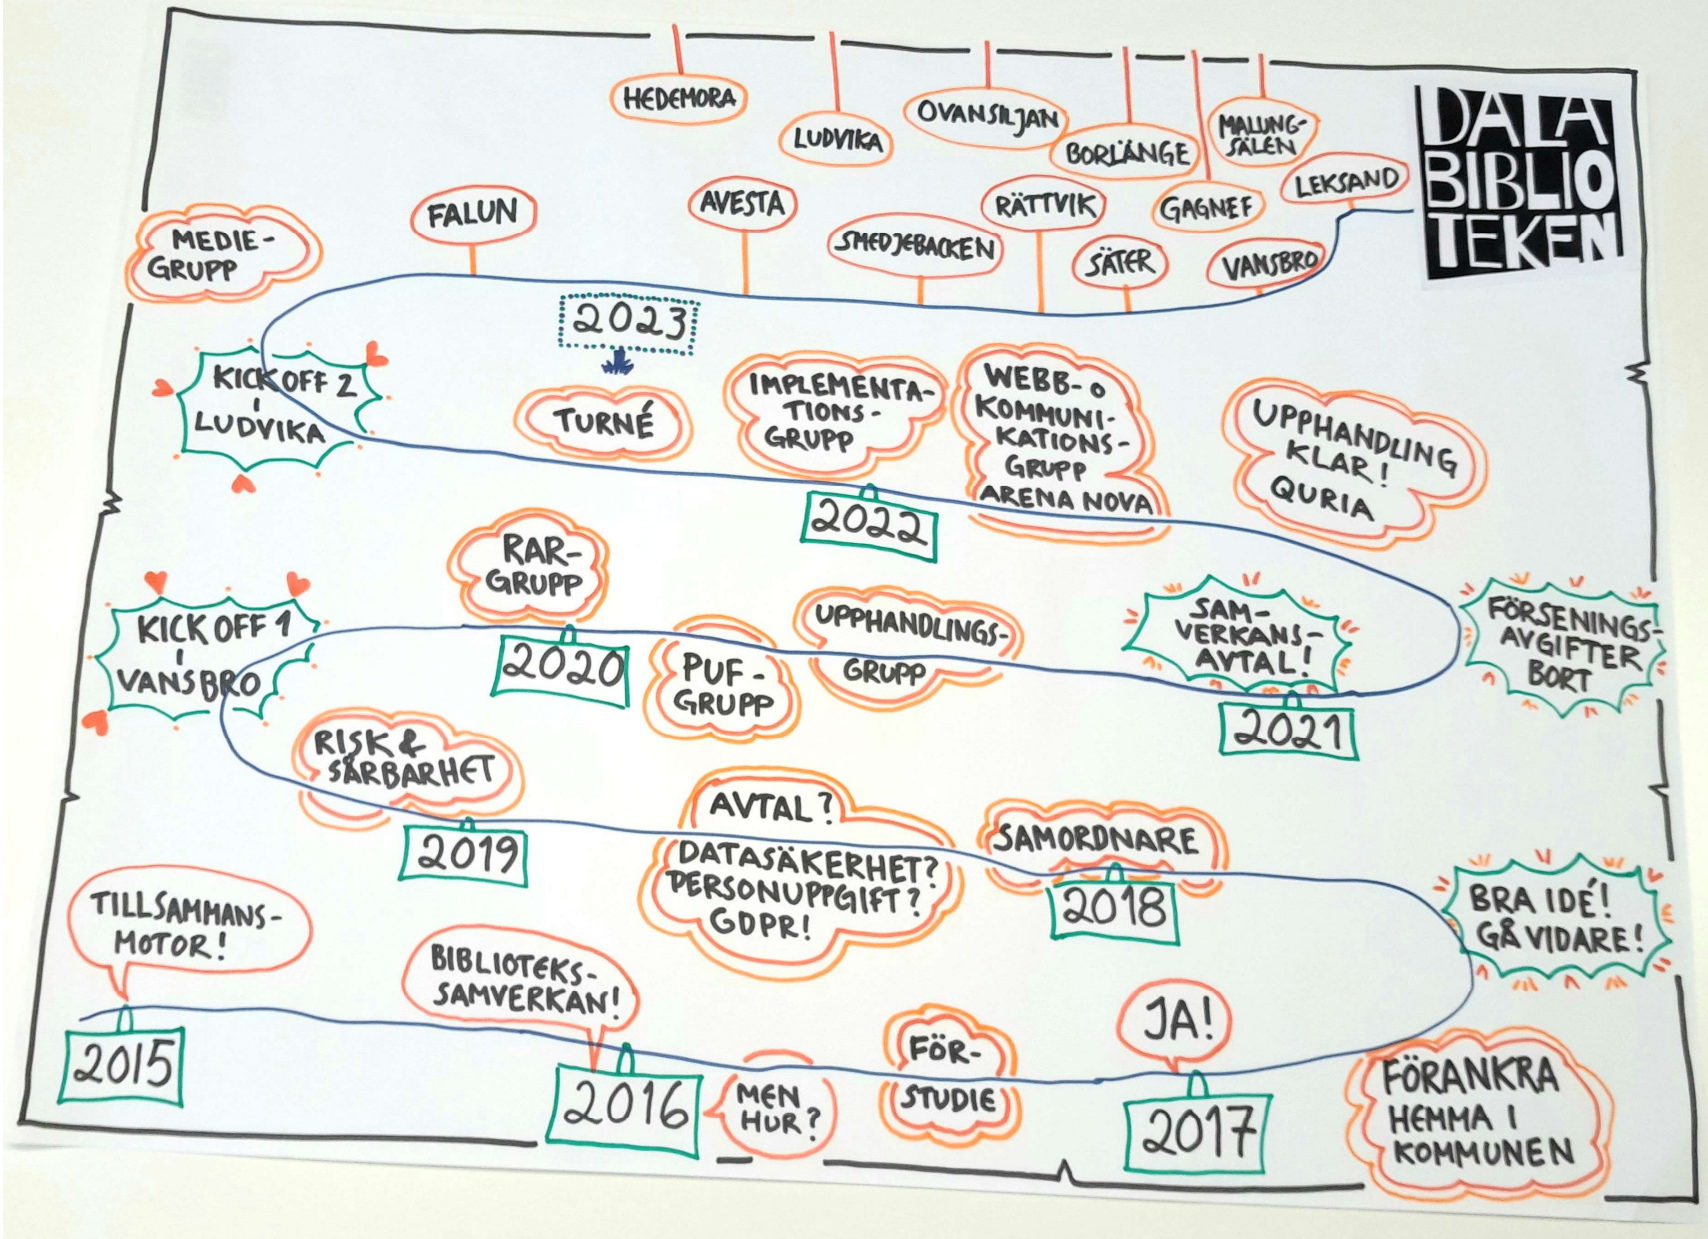 DALA
BIBLIO
TEKEN
HEDEMORA
LUDVIKA
OVANSILJAN
BORLÄNGE
MALUNG-
SÄLEN
LEKSAND
GAGNEF
RÄTTVIK
AVESTA
FALUN
SMEDJEBACKEN
SÄTER
VANSBRO
MEDIE-
GRUPP
2023
KICK OFF 2
I
LUDVIKA
TURNÉ
IMPLEMENTA-
TIONS-
GRUPP
WEBB- O
KOMMUNI-
KATIONS-
GRUPP
ARENA NOVA
UPPHANDLING
KLAR!
QURIA
2022
RAR-
GRUPP
KICK OFF 1
I
VANSBRO
2020
PUF-
GRUPP
UPPHANDLINGS-
GRUPP
SAM-
VERKANS-
AVTAL!
2021
FÖRSENINGS-
AVGIFTER
BORT
RISK &
SÅRBARHET
2019
AVTAL?
DATASÄKERHET?
PERSONUPPGIFT?
GDPR!
SAMORDNARE
2018
BRA IDÉ!
GÅ VIDARE!
TILLSAMMANS-
MOTOR!
2015
BIBLIOTEKS-
SAMVERKAN!
2016
MEN
HUR?
FÖR-
STUDIE
JA!
2017
FÖRANKRA
HEMMA I
KOMMUNEN